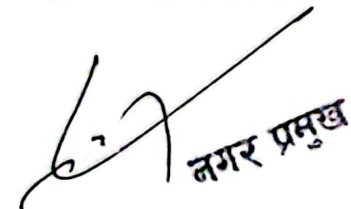 नगर प्रमुख